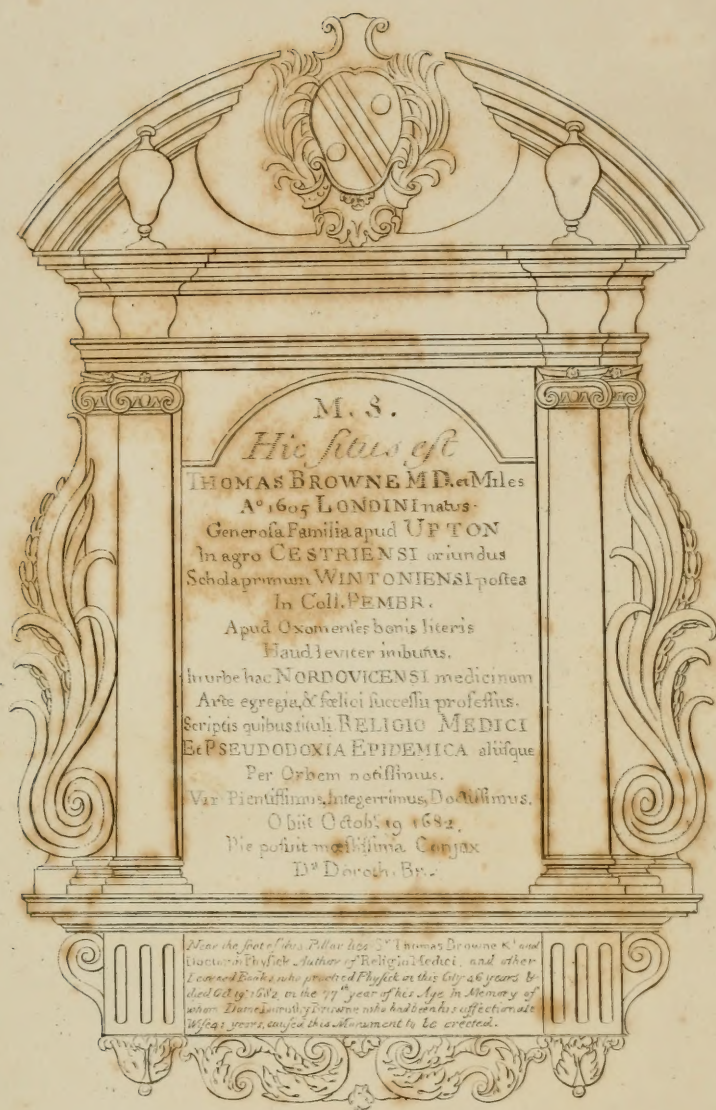 M. S.
Hic ſitus eſt
THOMAS BROWNE M D. et Miles
Aº 1605 LONDINI natus.
Generoſa Familia apud UPTON
In agro CESTRIENSI oriundus
Schola primum WINTONIENSI poſtea
In Coll. PEMBR.
Apud Oxonienſes bonis literis
Haud leviter imbutus.
In urbe hac NORDOVICENSI medicinam
Arte egregia, & fœlici ſucceſſu profeſſus.
Scriptis quibus tituli RELIGIO MEDICI
Et PSEUDODOXIA EPIDEMICA aliiſque
Per Orbem notiſſimus.
Vir Pientiſſimus, Integerrimus, Doctiſſimus.
Obiit Octobʳ. 19 1682.
Pie poſuit mœſtiſſima Conjux
Dª Doroth. Br.
Near the foot of this Pillar lies Sʳ Thomas Browne Kᵗ and
Doctor in Phyſick Author of Religio Medici, and other
Learned Books who practiced Phyſick in this City 46 years &
died Octʳ 19ᵗʰ 1682 in the 77ᵗʰ year of his Age In Memory of
whom Dame Dorothy Browne who had been his affectionate
Wife 41 years, cauſed this Monument to be erected.